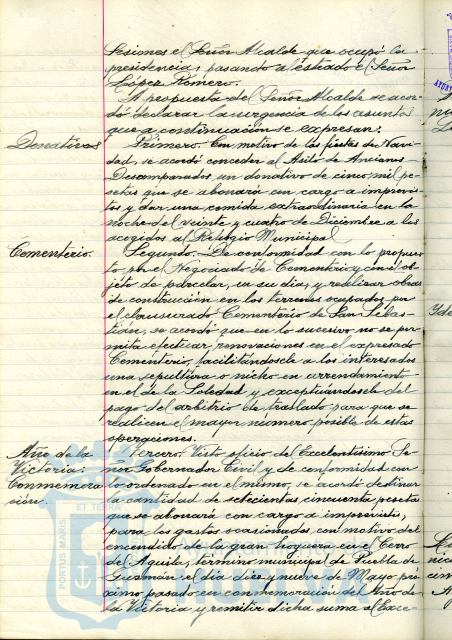 Sesiones el Señor Alcalde que ocupó la
presidencia, pasando al estrado el Señor
López Romero.
A propuesta del Señor Alcalde se acor-
dó declarar la urgencia de los asuntos
que a continuación se expresan:
Donativos
Primero. Con motivo de las fiestas de Navi-
dad, se acordó conceder al Asilo de Ancianos
Desamparados un donativo de cinco mil pe-
setas que se abonará con cargo a imprevis-
tos y dar una comida extraordinaria en la
noche del veinte y cuatro de Diciembre a los
acogidos al Refugio Municipal
Cementerio.
Segundo. De conformidad con lo propues-
to por el Negociado de Cementerio y con el ob-
jeto de parcelar, en su dia, y realizar obras
de construcción en los terrenos ocupados por
el clausurado Cementerio de San Sebas-
tián, se acordó que en lo sucesivo no se per-
mita efectuar renovaciones en el expresado
Cementerio, facilitándosele a los interesados
una sepultura o nicho en arrendamiento
en el de la Soledad y exceptuándosele del
pago del arbitrio de traslado para que se
realicen el mayor número posible de estas
operaciones.
Año de la
Victoria:
Conmemora
ción.
Tercero. Visto oficio del Excelentísimo Se-
ñor Gobernador Civil y de conformidad con
lo ordenado en el mismo, se acordó destinar
la cantidad de setecientas cincuenta pesetas
que se abonará con cargo a imprevistos,
para los gastos ocasionados, con motivo del
encendido de la gran hoguera en el Cerro
del Aguila, término municipal de Puebla de
Guzmán, el día diez y nueve de Mayo pró-
ximo pasado en conmemoración del Año de
la Victoria y remitir dicha suma al Exce-
ET TERRÆ
PORTUS MARIS
Ayuntamiento de
HUELVA